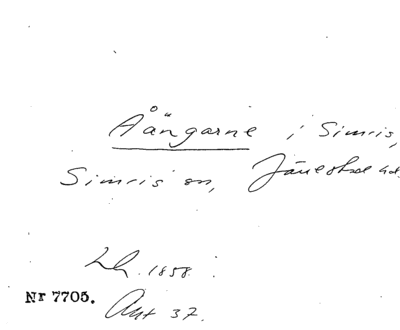 Aångarne i Simris,
Simris sn, Järrestad hd.
Lh. 1858.
Nr 7705.
Akt 37.